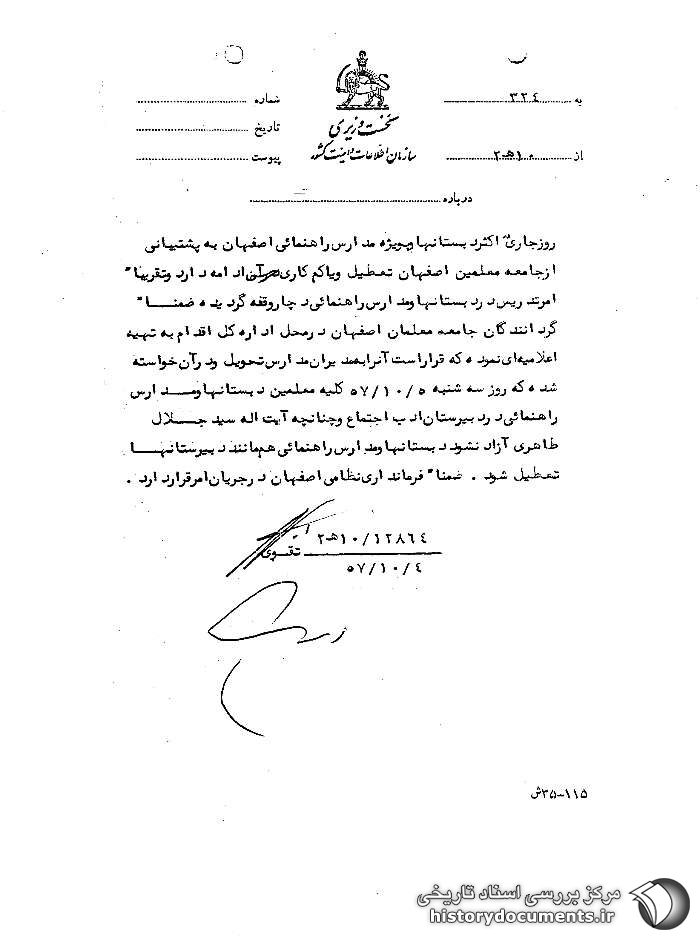 به ۳۲٤
شماره
نخست وزیری
تاریخ
از ۱۰هـ۲
سازمان اطلاعات و امنیت کشور
پیوست
درباره
روزجاری اکثردبستانها وبویژه مدارس راهنمائی اصفهان به پشتیبانی
ازجامعه معلمین اصفهان تعطیل ویاکم کاری درآن ادامه دارد وتقریبا"
امرتدریس درد بستانها ومدارس راهنمائی دچاروقفه گردیده ضمنـــا"
گردانندگان جامعه معلمان اصفهان درمحل اداره کل اقدام به تهیه
اعلامیه‌ای نموده که قراراست آنرابه مدیران مدارس تحویل ودرآن خواسته
شده که روز سه شنبه ۵۷/۱۰/۵ کلیه معلمین دبستانها ومــدارس
راهنمائی درد بیرستان ادب اجتماع وچنانچه آیت اله سید جــلال
طاهری آزاد نشود دبستانها ومدارس راهنمائی هم مانند دبیرستانهـــا
تعطیل شود . ضمنا" فرمانداری نظامی اصفهان درجریان امرقراردارد .
۱۰/۱۲۸٦٤هـ۲
تقوی
۵۷/۱۰/٤
۱۱۵-۳۵ش
مرکز بررسی اسناد تاریخی
historydocuments.ir